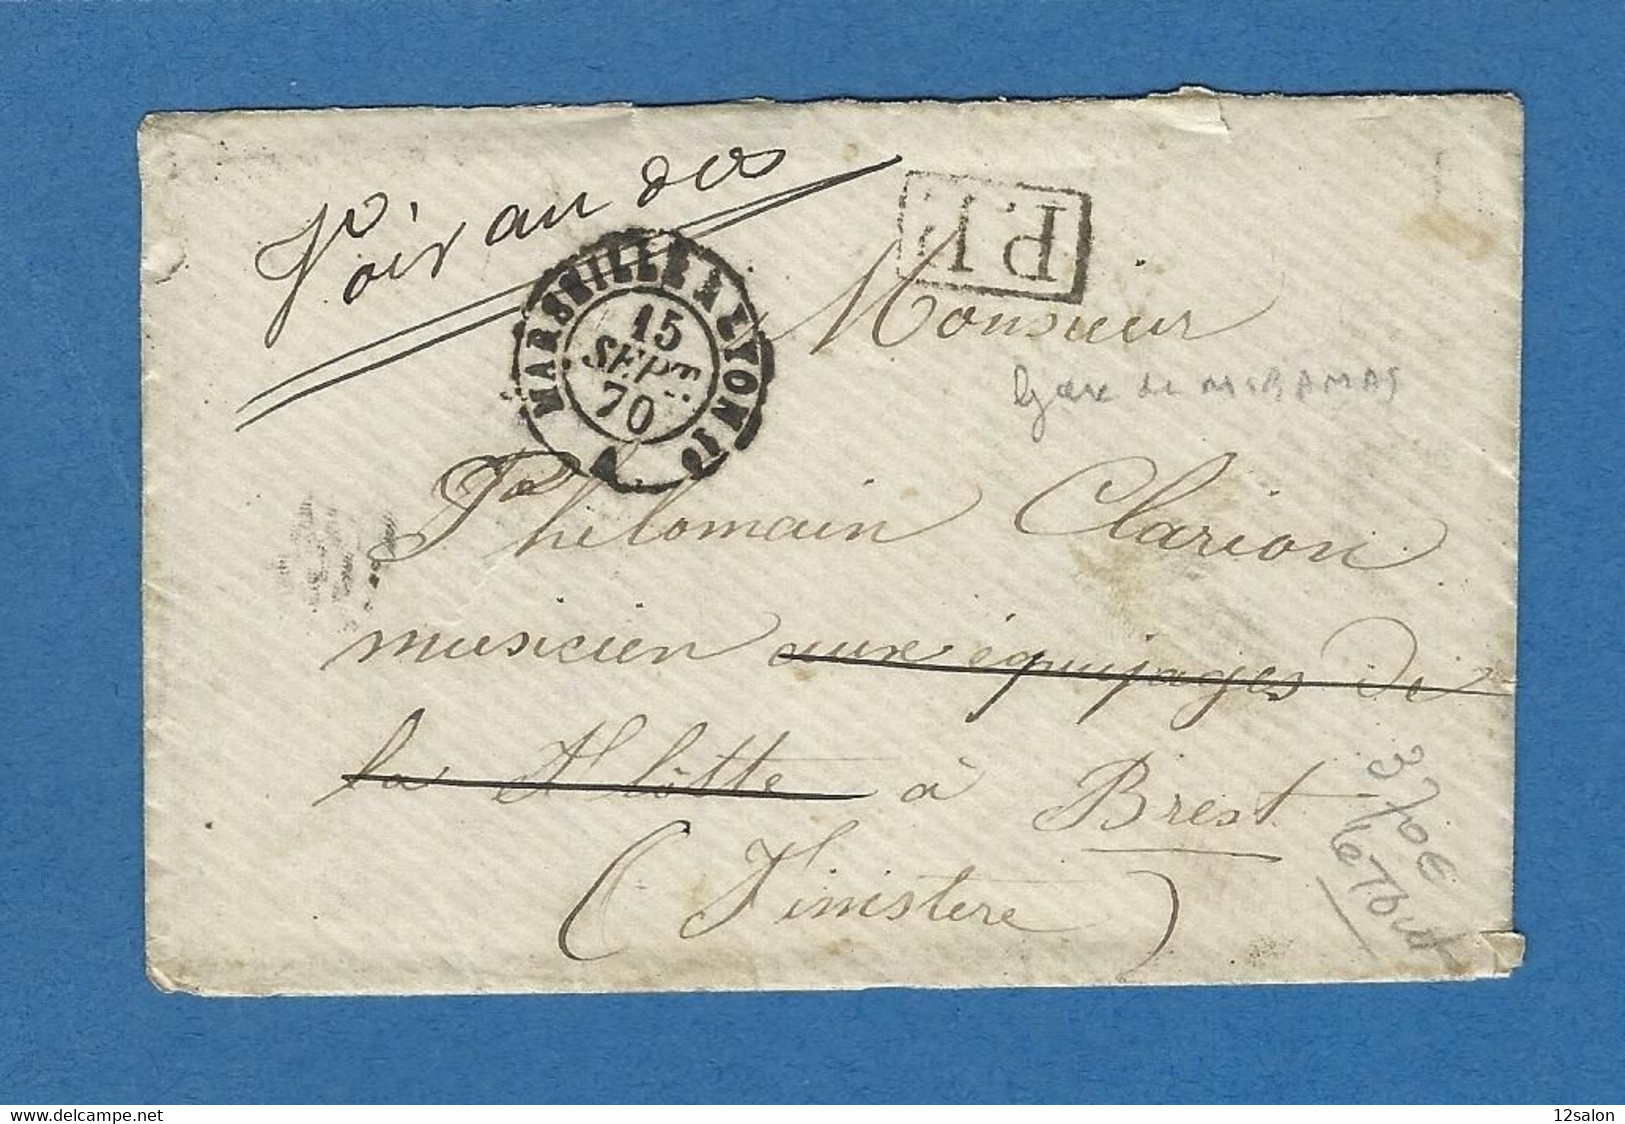 Voir au dos
P.P.
MARSEILLE A LYON 1o
15
SEPT.
70
Monsieur
gare de MiRAMAS
Philomain Clarion
musicien aux équipages de
la Flôtte à Brest
(Finistere)
www.delcampe.net
12salon